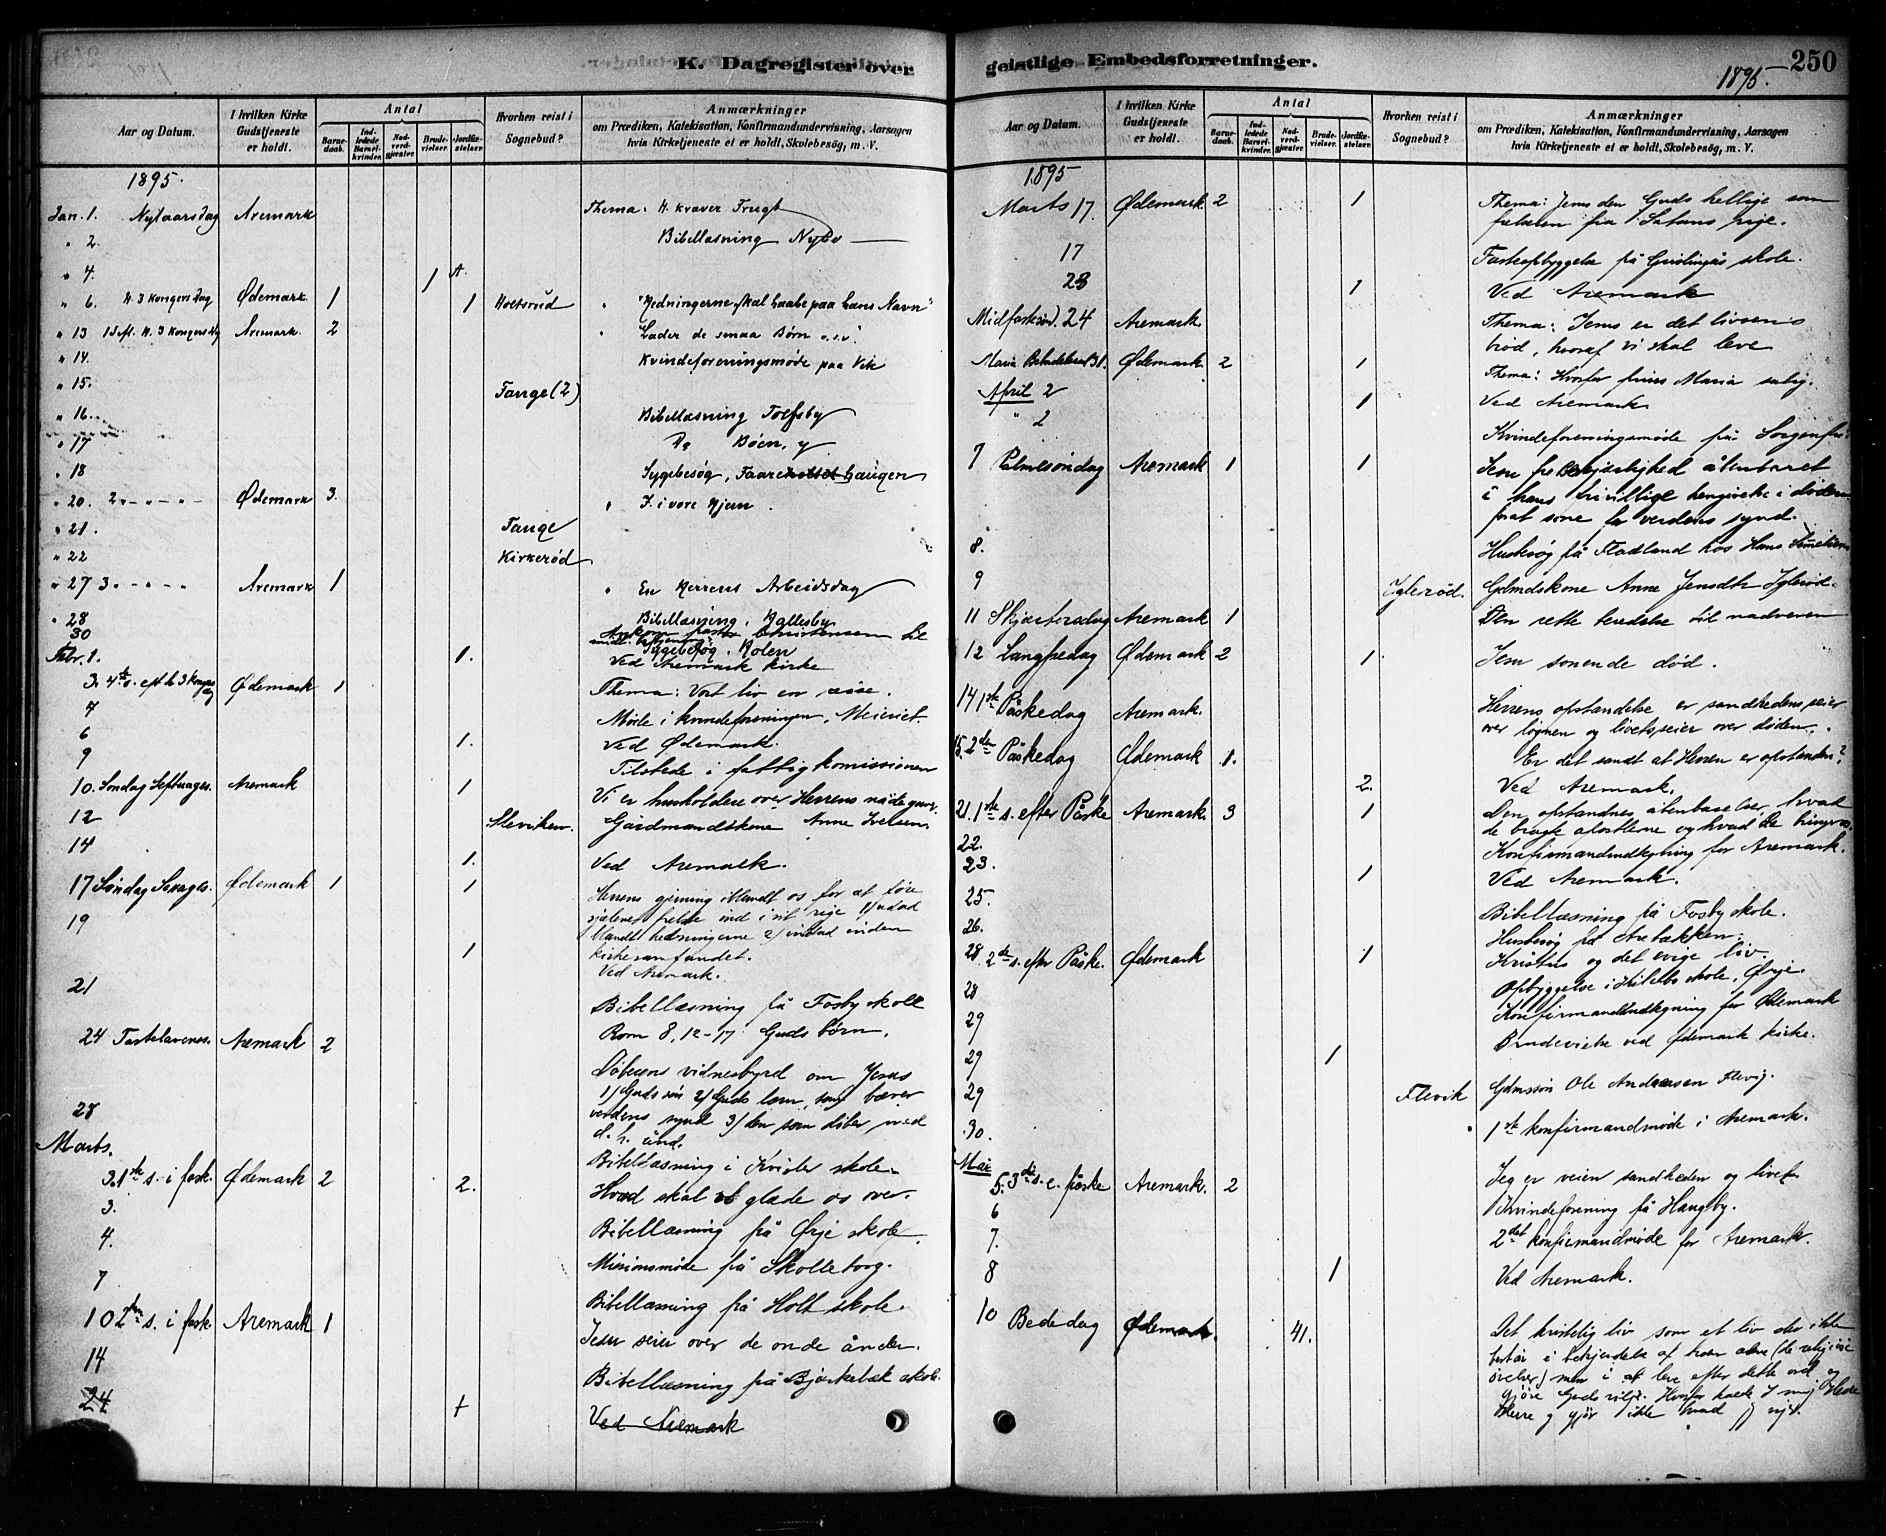 K. Dagregister over
Aar og Datum.
I hvilken Kirke Gudstjeneste er holdt.
Antal
Barnedaab.
Indledede Barselkvinder.
Nadverdgjæster.
Brudevielser.
Jordfæstelser.
Hvorhen reist i Sognebud?
Anmærkninger
om Prædiken, Katekisation, Konfirmandundervisning, Aarsagen
hvis Kirketjeneste ei er holdt, Skolebesøg, m. V.
1895.
Jan. 1. Nytaarsdag Aremark Thema: H. kræver Frugt
" 2. Bibellæsning Nybo
" 4. 1
" 6. H. 3 Kongers Dag Ødemark 1 1 Holtsrud " "Hedningerne skal haabe paa hans Navn"
" 13 1 S. eft. H. 3 Kongers Dg Aremark. 2 " Lader de smaa Børn o.s.v.
" 14. Kvindeforeningsmøde paa Vik
" 15. Tange (2)
" 16. Bibellæsning Tolfsby
" 17 Do Bøen, y
" 18 Sygebesøg, Faareholtet haugen
" 20. 2 " - " - " - Ødemark 3. " J. i vore Hjem.
" 21. Tange
" 22 Kirkerød
" 27 3 " - " - " Aremark 1 " En Herrens Arbeidsdag
" 28 Bibellæsning, Hallesby
30 Ankom pastor Christensen til
Sygebesøg. Holen
Febr. 1. 1. Ved Aremark kirke
3. 4de s. eft h. 3 kongers dag Ødemark 1 Thema: Vort liv en reise.
4 Møde i kvindeforeningen, Meieriet
6 1. Ved Ødemark.
9 Tilstede i fattigkomissionen
10. Søndag Septuages. Aremark 1 Vi er husholdere over Herrens nådegaver.
12 Sleviken. Gårdmandskone Anne Iversen.
14 1. Ved Aremark.
17 Søndag Sexages. Ødemark 1 1 Herrens gjerning iblandt os for at føre
sjælene frelste ind i sit rige, 1/ udad
19 blandt hedningerne 2/ indad inden
1 kirkesamfundet.
Ved Aremark.
21 Bibellæsning på Fosby skole
Rom 8, 12-17 Guds børn.
24 Fastelavnens. Aremark 2 Døberens vidnesbyrd om Jesus
1/ Guds søn 2/ Guds lam, som bærer
28 verdens synd 3/ den som døber med
d. h. ånd.
Marts. Bibellæsning i Kvisler skole.
3. 1ste s. i fast. Ødemark 2 2. Hvad skal vi glæde os over.
3. Bibellæsning på Ørje skole
4. Missionsmøde på Skolleborg.
7 Bibellæsning på Holt skole.
10 2den s. i faste Aremark 1 Jesu seier over de onde ånder.
14 Bibellæsning på Bjørkebæk skole.
24 1 Ved Aremark
geistlige Embedsforretninger.
1895.
250
Aar og Datum.
I hvilken Kirke Gudstjeneste er holdt.
Antal
Barnedaab.
Indledede Barselkvinder.
Nadverdgjæster.
Brudevielser.
Jordfæstelser.
Hvorhen reist i Sognebud?
Anmærkninger
om Prædiken, Katekisation, Konfirmandundervisning, Aarsagen
hvis Kirketjeneste ei er holdt, Skolebesøg, m. V.
1895
Marts 17. Ødemark 2 1 Thema: Jesus den Guds hellige som
frelseren fra Satans rige.
17 Fasteopbyggelse på skole.
23 1 Ved Aremark
Midfastesønd. 24 Aremark Thema: Jesus er det livsens
brød, hvoraf vi skal leve
Maria Bebudelses 31. Ødemark 2 1 Thema: Hvorfor prises Maria salig.
April 2 1 Ved Aremark
" 2 Kvindeforeningsmøde på Sorgenfri
7 Palmesøndag Aremark 1 1 Jesu frelserkjærlighed åbenbaret
i hans frivillige hengivelse i døden
forat sone for verdens synd.
8. Husbesøg på Fladland hos Hans
9 Iglerød. Gdmdskone Anne Jensdtr Iglerød.
11 Skjærtorsdag Aremark 1 Den rette beredelse til nadveren
12 Langfredag Ødemark 2 1 Jesu sonende død.
14 1ste Påskedag Aremark. Herrens opstandelse er sandhedens seier
over løgnen og livets seier over døden.
15. 2den Påskedag Ødemark 1. Er det sandt at Herren er opstanden?
2. Ved Aremark.
21. 1ste s. efter Påske Aremark 3 1 Den opstandnes åbenbarelser, hvad
de bragte apostlene og hvad de bringer os.
22. Konfirmandindskrivning for Aremark.
23. 1 Ved Aremark.
25. Bibellæsning på Fosby skole.
26. Husbesøg på Arebækken.
28. 2den s. eftr Påske. Ødemark 1 Kristus og det evige liv
28 Opbyggelse i skole, Ørje.
29 Konfirmandindskrivning for Ødemark
29 1 Brudevielse ved Ødemark kirke.
29 Flevik Gdmssøn Ole Andersen Flevig.
30. 1ste konfirmandmøde i Aremark.
Mai
5. 3die s. e. påske Aremark. 2 Jeg er veien sandheden og livet
6 Kvindeforening på Haugby.
7. 2det konfirmandmøde for Aremark.
8 1 Ved Aremark.
10 Bededag Ødemark. 41. Det kristelig liv som et liv der ikke
består i bekjendelse af alene (de religiøse
øvelser) men i at leve efter dette ord og
gjøre Guds vilje. Hvorfor kalde I mig Herre
Herre og gjør ikke hvad jeg siger.